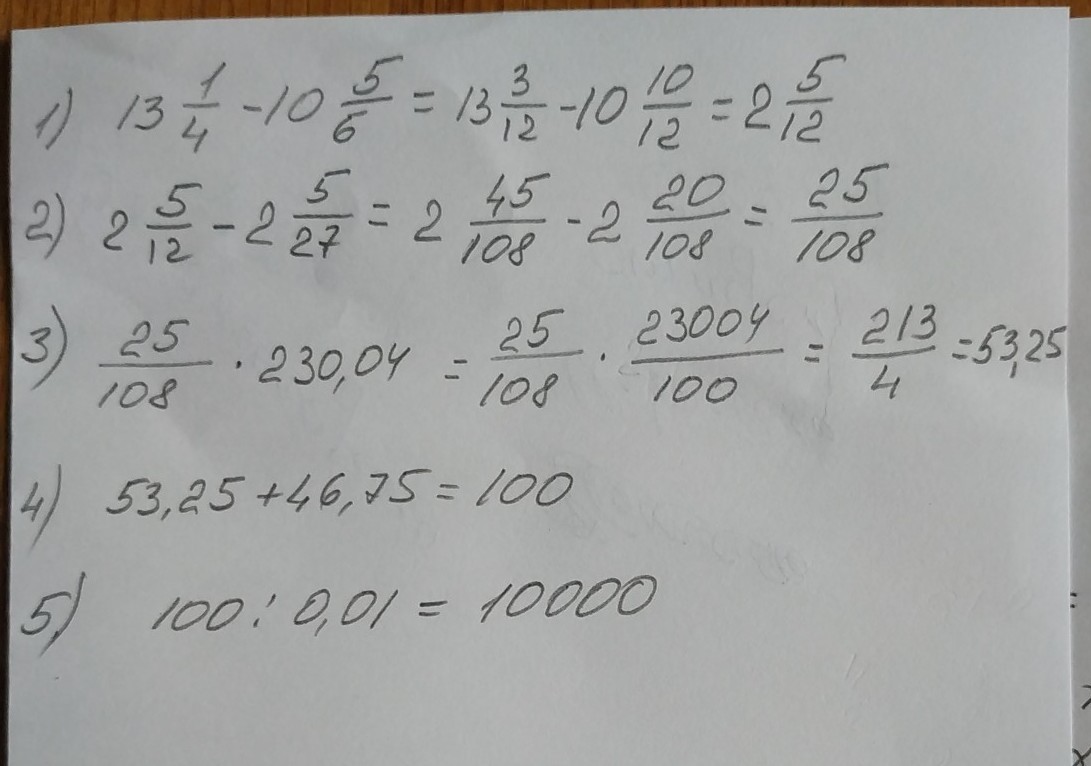 1) 13 1/4 - 10 5/6 = 13 3/12 - 10 10/12 = 2 5/12
2) 2 5/12 - 2 5/27 = 2 45/108 - 2 20/108 = 25/108
3) 25/108 · 230,04 = 25/108 · 23004/100 = 213/4 = 53,25
4) 53,25 + 46,75 = 100
5) 100 : 0,01 = 10000